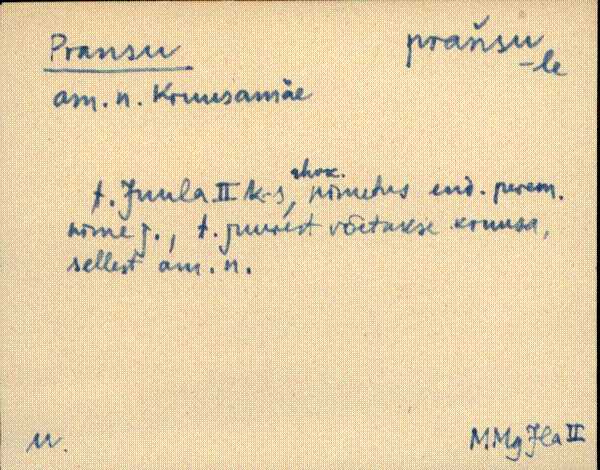 Pransu
prańsu
-le
am. n. Kruusamäe
t. Juula II k-s, nimetus end. perem.
nime j., t. juurest võetakse kruusa,
sellest am. n.
M.Mg Jla II